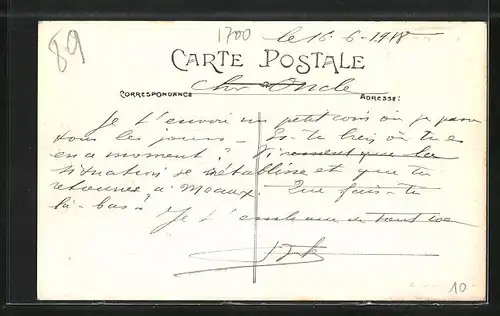 89
1700
le 16-6-1918
CARTE POSTALE
Cher Oncle
CORRESPONDANCE
ADRESSE:
Je t'envoi un petit coin où je passe
tous les jours - Es-tu bien où tu es
en ce moment? Vivement que la
situation se rétablisse et que tu
retournes à Meaux. Que fais-tu
là-bas?
Je t'embrasse de tout
10